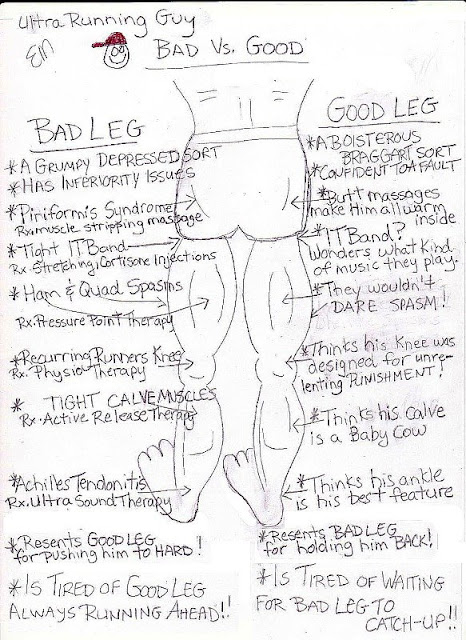 Ultra Running Guy
EM
BAD Vs. GOOD
BAD LEG
*A GRUMPY DEPRESSED SORT
*HAS INFERIORITY ISSUES
*Piriformis Syndrome
Rx.muscle stripping massage
*Tight IT Band
Rx.Stretching,Cortisone Injections
*Ham & Quad Spasms
Rx.Pressure Point Therapy
*Recurring Runners Knee
Rx. Physio Therapy
* TIGHT CALVE MUSCLES
Rx.Active Release Therapy
*Achilles Tendonitis
Rx.Ultra Sound Therapy
*Resents GOOD LEG
for pushing him to HARD!
*IS TIRED OF GOOD LEG
ALWAYS RUNNING AHEAD!!
GOOD LEG
*A BOISTEROUS
BRAGGART SORT
*CONFIDENT TO A FAULT
*Butt massages
make Him all warm
inside
*IT Band?
Wonders what kind
of music they play.
*They wouldn't
DARE SPASM!
*Thinks his Knee was
designed for unre-
lenting PUNISHMENT!
*Thinks his Calve
is a Baby Cow
*Thinks his ankle
is his best feature
*Resents BAD LEG
for holding him BACK!
*IS TIRED OF WAITING
FOR BAD LEG TO
CATCH-UP!!